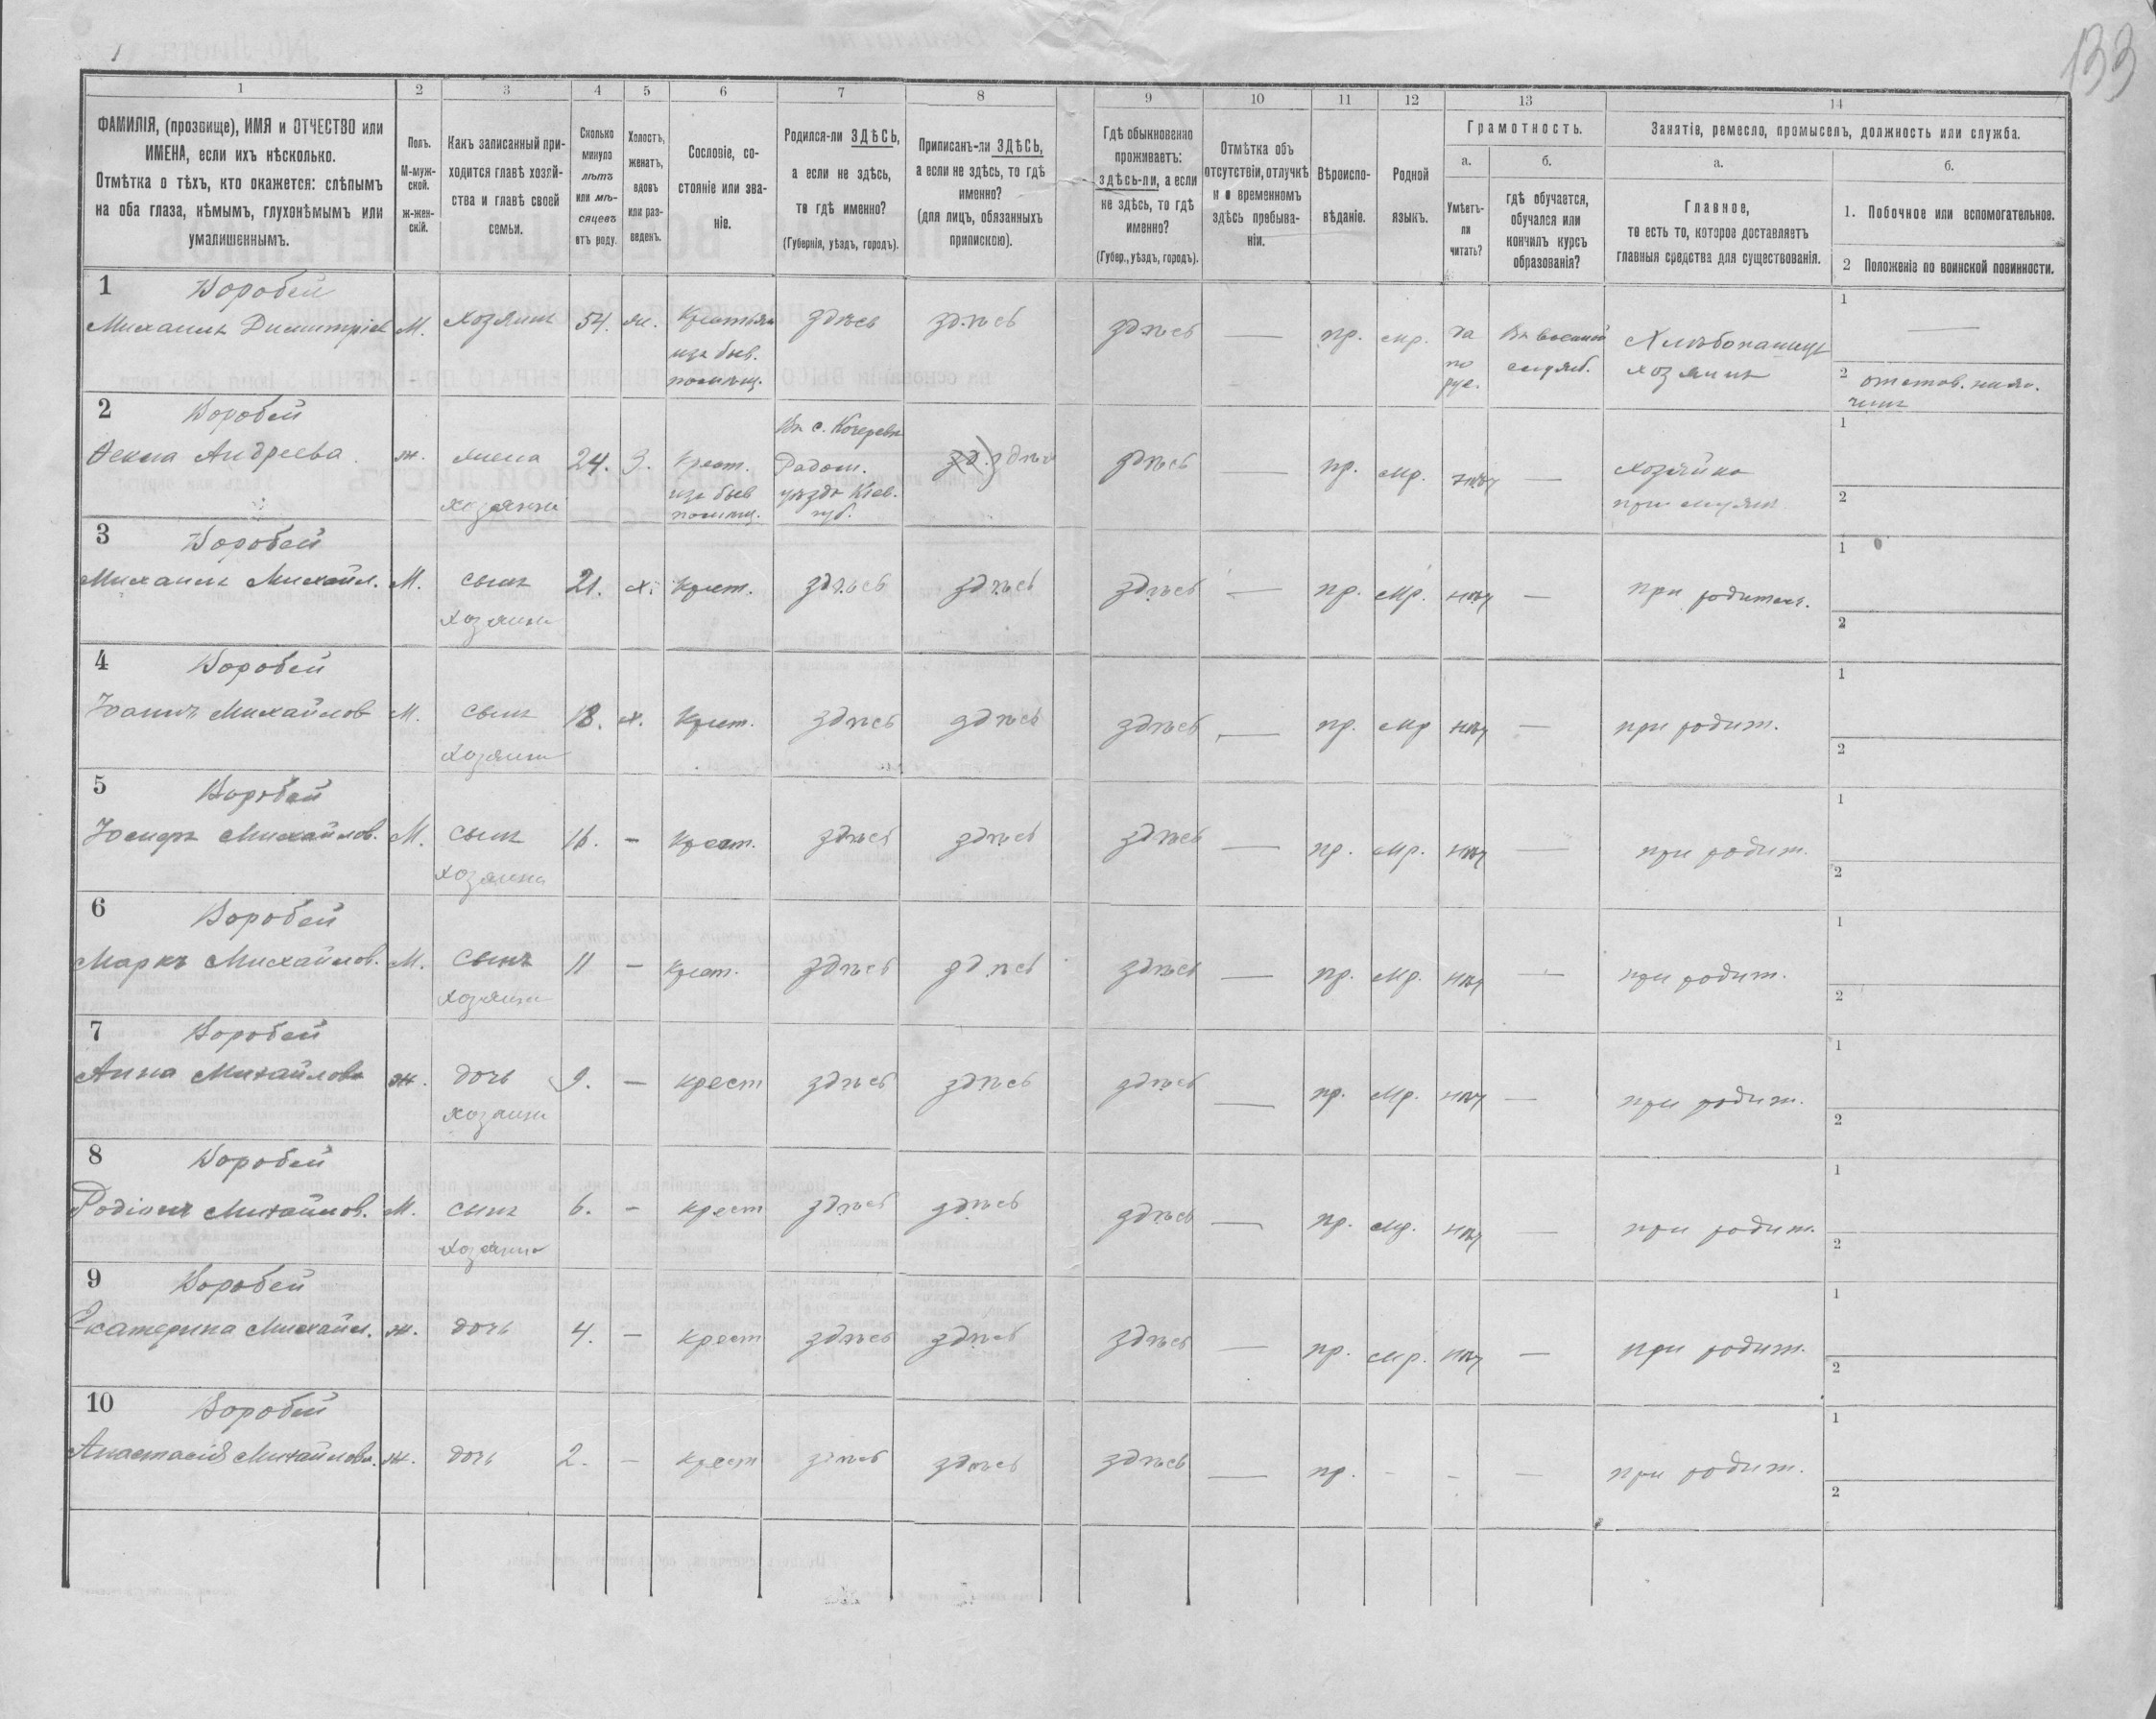 133
1 2 3 4 5 6 7 8 9 10 11 12 13 14
ФАМИЛІЯ, (прозвище), ИМЯ и ОТЧЕСТВО или ИМЕНА, если ихъ нѣсколько.
Отмѣтка о тѣхъ, кто окажется: слѣпымъ на оба глаза, нѣмымъ, глухонѣмымъ или умалишеннымъ.
Полъ. М-мужской. ж-женскій.
Какъ записанный приходится главѣ хозяйства и главѣ своей семьи.
Сколько минуло лѣтъ или мѣсяцевъ отъ роду.
Холостъ, женатъ, вдовъ или разведенъ.
Сословіе, состояніе или званіе.
Родился-ли ЗДѢСЬ, а если не здѣсь, то гдѣ именно?
(Губернія, уѣздъ, городъ).
Приписанъ-ли ЗДѢСЬ, а если не здѣсь, то гдѣ именно?
(для лицъ, обязанныхъ припискою).
Гдѣ обыкновенно проживаетъ: здѣсь-ли, а если не здѣсь, то гдѣ именно?
(Губер., уѣздъ, городъ).
Отмѣтка объ отсутствіи, отлучкѣ и о временномъ здѣсь пребываніи.
Вѣроисповѣданіе.
Родной языкъ.
Грамотность.
а. б.
Умѣетъ-ли читать?
гдѣ обучается, обучался или кончилъ курсъ образованія?
Занятіе, ремесло, промыселъ, должность или служба.
а. б.
Главное, то есть то, которое доставляетъ главныя средства для существованія.
1. Побочное или вспомогательное.
2 Положеніе по воинской повинности.
1 Воробей
Михаилъ Димитріев М. хозяинъ 54. ж. Крестьян. изъ быв. помѣщ. здѣсь здѣсь здѣсь — пр. мр. да по рус. Въ военной служб. Хлѣбопашецъ хозяинъ
1 —
2 отстав. нижн. чинъ
2 Воробей
Ѳекла Андреева ж. жена хозяина 24. З. Крест. изъ быв помѣщ. Въ с. Кочерев. Радом. уѣзда Кіев. губ. здѣсь здѣсь — пр. мр. нѣт — хозяйка при мужѣ
1
2
3 Воробей
Михаилъ Михайл. М. сынъ хозяина 21. х. Крест. здѣсь здѣсь здѣсь — пр. мр. нѣт — при родител.
1
2
4 Воробей
Іоаннъ Михайлов М. сынъ хозяина 18. х. Крест. здѣсь здѣсь здѣсь — пр. мр нѣт — при родит.
1
2
5 Воробей
Іосифъ Михайлов. М. сынъ хозяина 16. — Крест. здѣсь здѣсь здѣсь — пр. мр. нѣт — при родит.
1
2
6 Воробей
Маркъ Михайлов. М. сынъ хозяина 11 — Крест. здѣсь здѣсь здѣсь — пр. мр. нѣт — при родит.
1
2
7 Воробей
Анна Михайлова ж. дочь хозяина 9. — крест здѣсь здѣсь здѣсь — пр. мр. нѣт — при родит.
1
2
8 Воробей
Родіонъ Михайлов. М. сынъ хозяина 6. — крест здѣсь здѣсь здѣсь — пр. мр. нѣт — при родит.
1
2
9 Воробей
Екатерина Михайл. ж. дочь 4. — крест здѣсь здѣсь здѣсь — пр. мр. нѣт — при родит.
1
2
10 Воробей
Анастасія Михайлова. ж. дочь 2. — крест здѣсь здѣсь здѣсь — пр. - - — при родит.
1
2